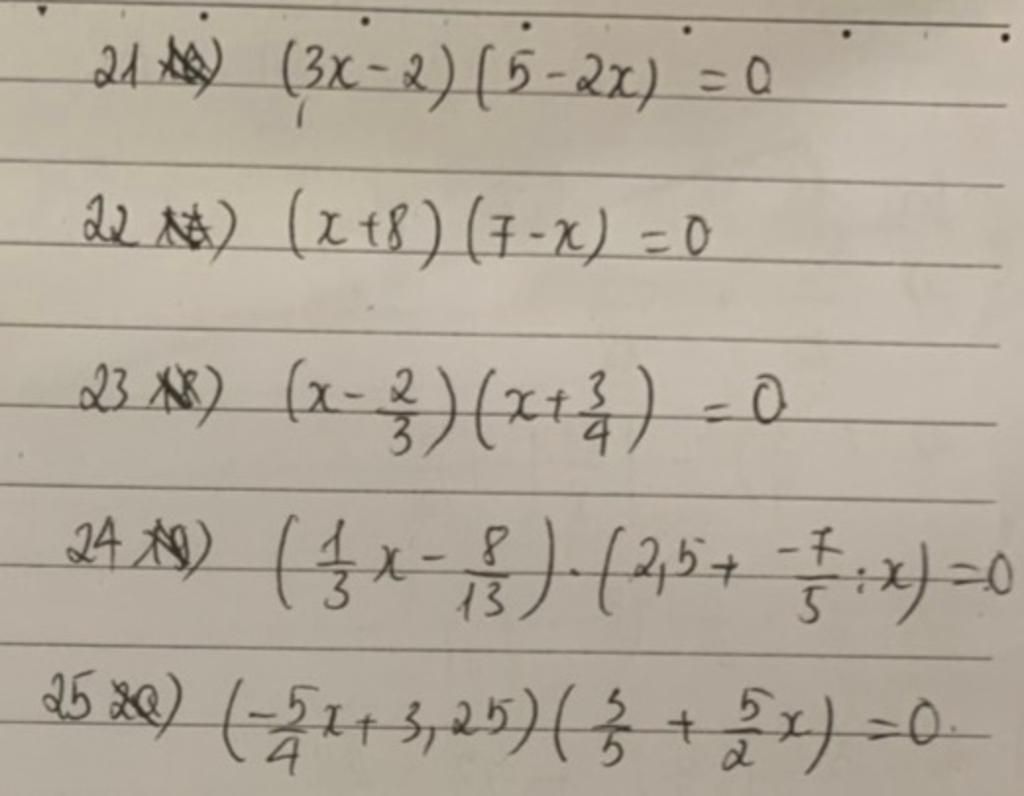 21) (3x - 2) (5 - 2x) = 0
22) (x + 8) (7 - x) = 0
23) (x - 2/3) (x + 3/4) = 0
24) (1/3 x - 8/13) . (2,5 + -7/5 : x) = 0
25) (-5/4 x + 3,25) (3/5 + 5/2 x) = 0.